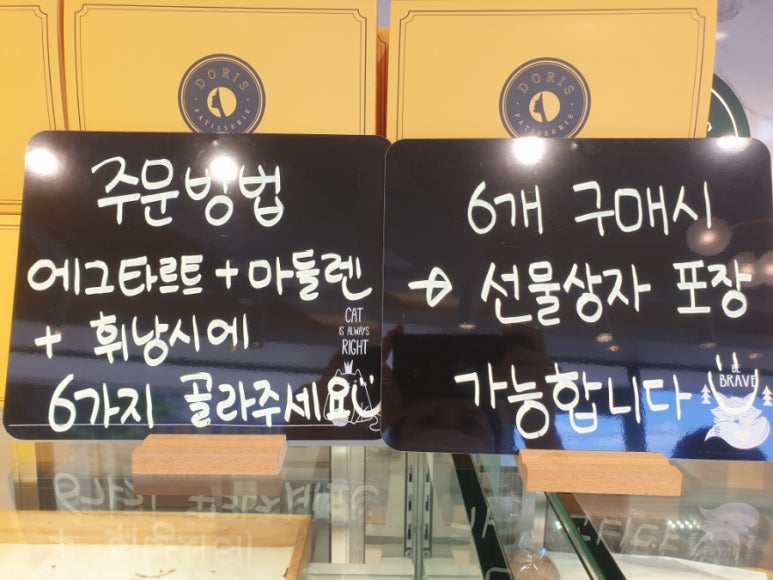 DORIS
PATISSERIE
DORIS
PATISSERIE
주문방법
에그타르트 + 마들렌
+ 휘낭시에
6가지 골라주세요
CAT
IS ALWAYS
RIGHT
6개 구매시
→ 선물상자 포장
가능합니다
BE
BRAVE